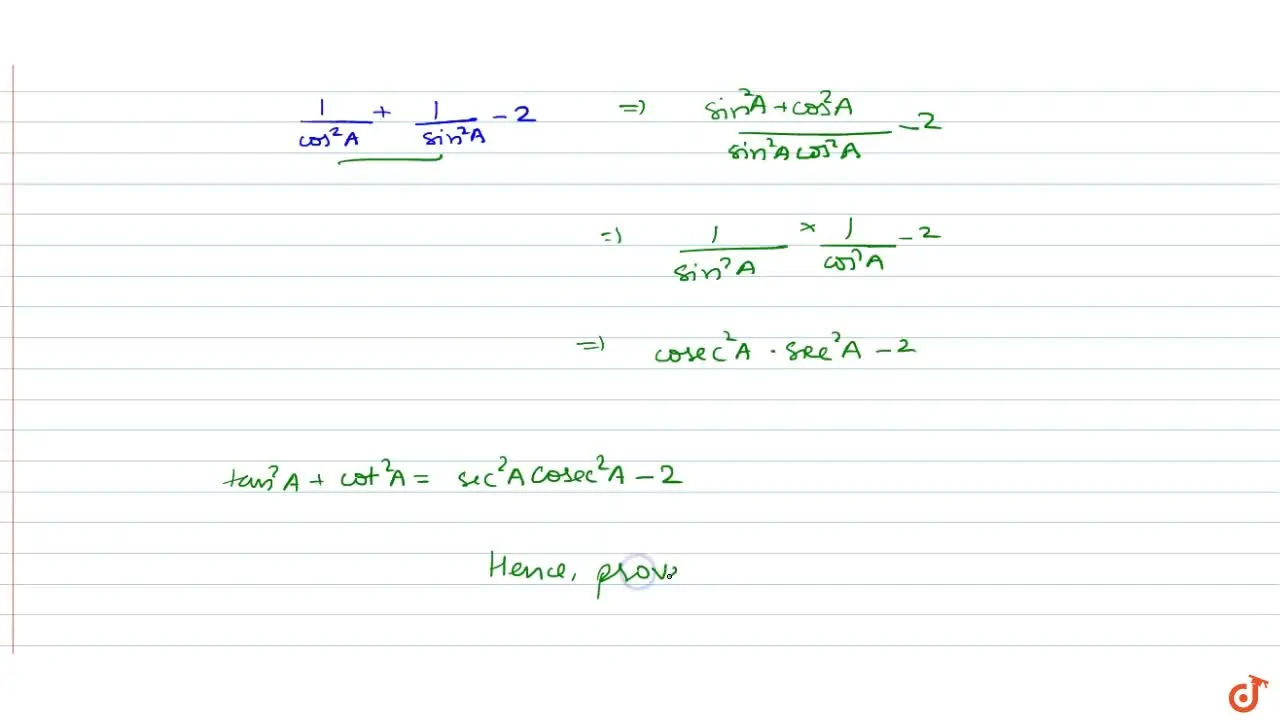 1/cos²A + 1/sin²A - 2 => (sin²A + cos²A)/(sin²A cos²A) - 2
=> 1/sin²A × 1/cos²A - 2
=> cosec²A · sec²A - 2
tan²A + cot²A = sec²A cosec²A - 2
Hence, prov